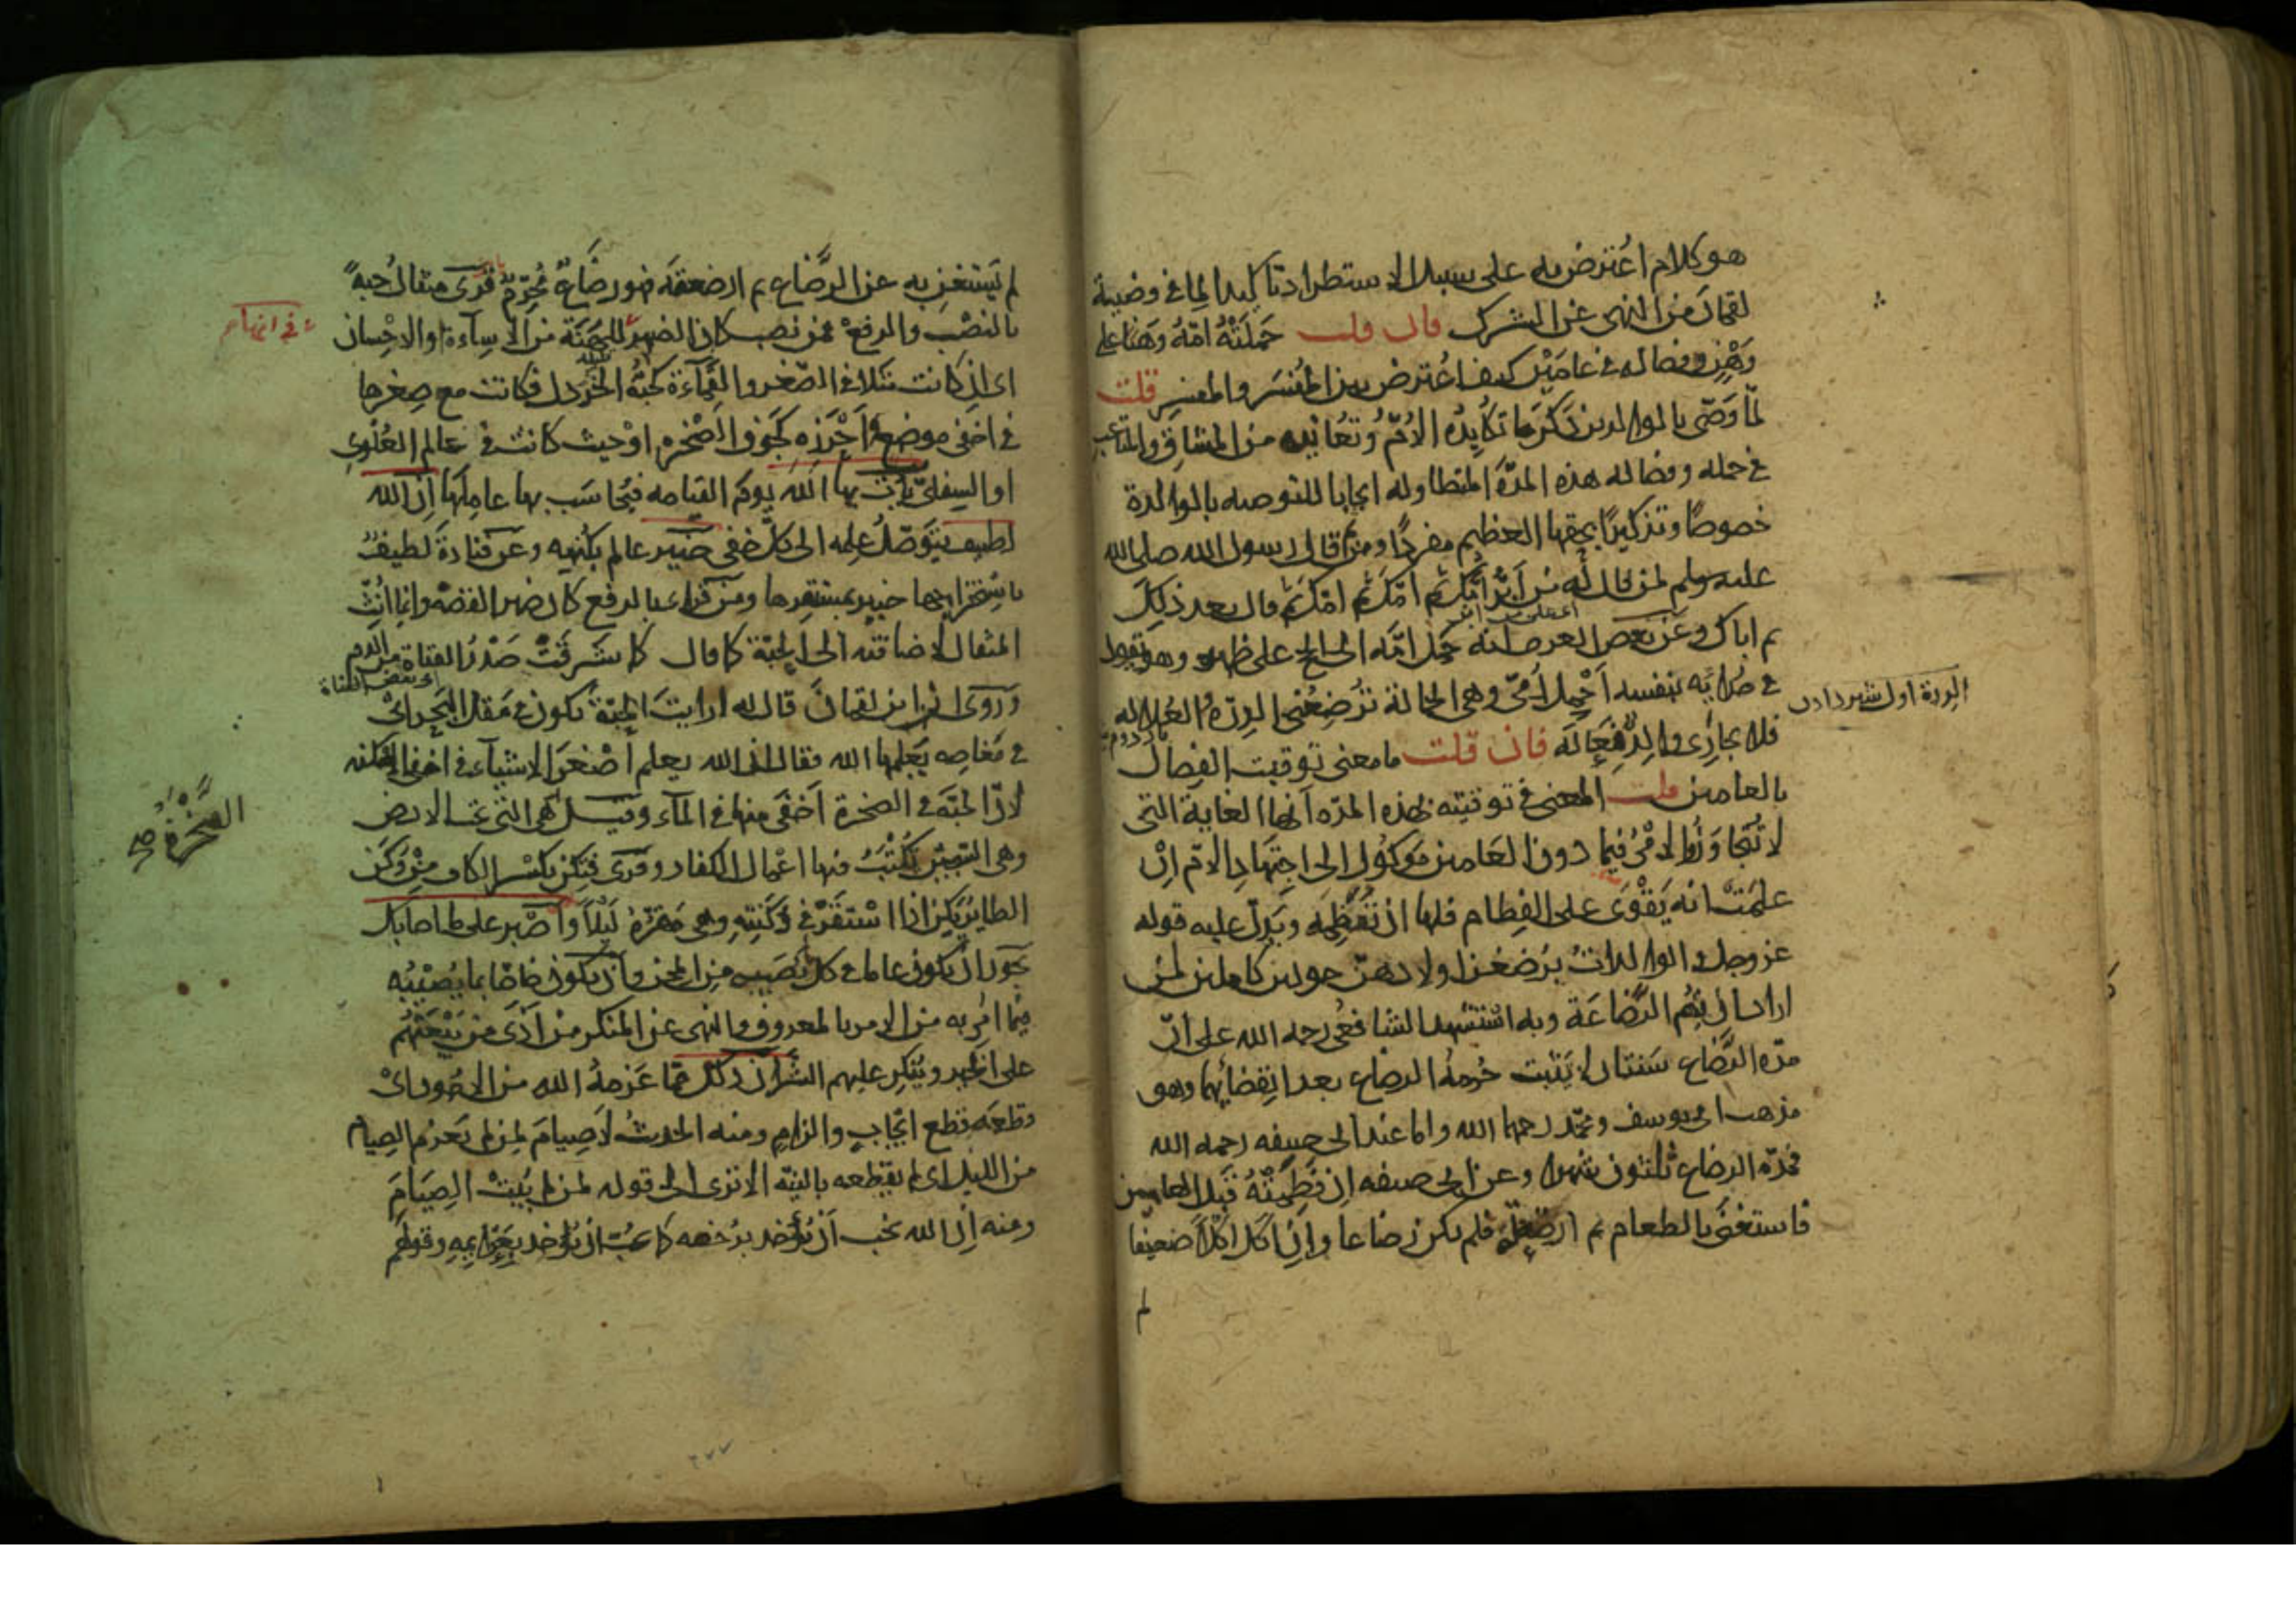 هو كلام اعترض به على سبيل الاستطراد تاكيدا لما فى وصية
لقمان من النهى عن الشرك فان قلت حملته امه وهنا على
وهن وفصاله فى عامين كيف اعترض به بين المفسَّر والمفسِّر قلت
لما وصى بالوالدين ذكر ما تكابده الام وتعانيه من المشاق والمتاعب
فى حمله وفصاله هذه المدة المتطاولة ايجابا للتوصية بالوالدة
خصوصا وتذكيرا بحقها العظيم مفردا ومن ثم قال رسول الله صلى الله
عليه وسلم لمن قال له من ابر امك ثم امك ثم امك ثم قال بعد ذلك
ثم اباك وعن بعض العرب انه حمل امه الى الحج على ظهره وهو يقول
فى حدائه بنفسه احمل امى وهى الحمالة ترضعنى الدرة والعلالة
الدرة اول شير دادن
فلا يجازى والد فعاله فان قلت ما معنى توقيت الفصال
بالعامين قلت المعنى فى توقيته بهذه المدة انها الغاية التى
لا تتجاوز والامر فيما دون العامين موكول الى اجتهاد الام ان
علمت انه يقوى على الفطام فلها ان تفطمه ويدل عليه قوله
عز وجل والوالدات يرضعن اولادهن حولين كاملين لمن
اراد ان يتم الرضاعة وبه استشهد الشافعى رحمه الله على ان
مدة الرضاع سنتان لا يثبت حرمة الرضاع بعد انقضائهما وهو
مذهب ابى يوسف ومحمد رحمهما الله واما عند ابى حنيفه رحمه الله
فمدة الرضاع ثلثون شهرا وعن ابى حنيفه ان فطمته قبل العامين
فاستغنى بالطعام ثم ارضعته فلم يكن رضاعا وان اكل اكلا ضعيفا
لم
لم يستغن به عن الرضاع ثم ارضعته فهو رضاع محرم قرى مثقال حبة
بالنصب والرفع فمن نصب كان الضمير للهنة من الاساءة او الاحسان
اى ان كانت مثلا فى الصغر والقماءة كحبة الخردل فكانت مع صغرها
فى اخفى موضع واحرزه كجوف الصخرة او حيث كانت فى عالم العلوى
او السفلى يات بها الله يوم القيامه فيحاسب بها عاملها ان الله
لطيف يتوصل علمه الى كل خفى خبير عالم بكنهه وعن قتادة لطيف
باستخراجها خبير بمستقرها ومن قرا بالرفع كان ضمير القصة وانما انث
المثقال لاضافته الى الحبة كما قال كما شرقت صدر القناة من الدم
وروى ان ابن لقمان قال له ارايت الحبة تكون فى مقل البحر اى
فى مغاصه يعلمها الله فقال ان الله يعلم اصغر الاشياء فى اخفى الامكنه
لان الحبة فى الصخرة اخفى منها فى الماء وقيل هى التى تحت الارض
الصخرة صح
وهى السجين يكتب فيها اعمال الكفار وقرى فتكن بكسر الكاف من وكن
الطاير يكن اذا استقر فى وكنته وهى مقره ليلا واصبر على ما اصابك
يجوز ان يكون عاما فى كل ما يصيبه من المحن وان يكون خاصا بما يصيبه
فيما امر به من الامر بالمعروف والنهى عن المنكر من اذى من يبعثهم
على الخير وينكر عليهم الشر ان ذلك مما عزمه الله من الامور اى
قطعه قطع ايجاب والزام ومنه الحديث لا صيام لمن لم يعزم الصيام
من الليل اى لم يقطعه بالنية الا ترى الى قوله لمن لم يبيت الصيام
ومنه ان الله يحب ان يؤخذ برخصه كما يحب ان يؤخذ بعزايمه وقولهم